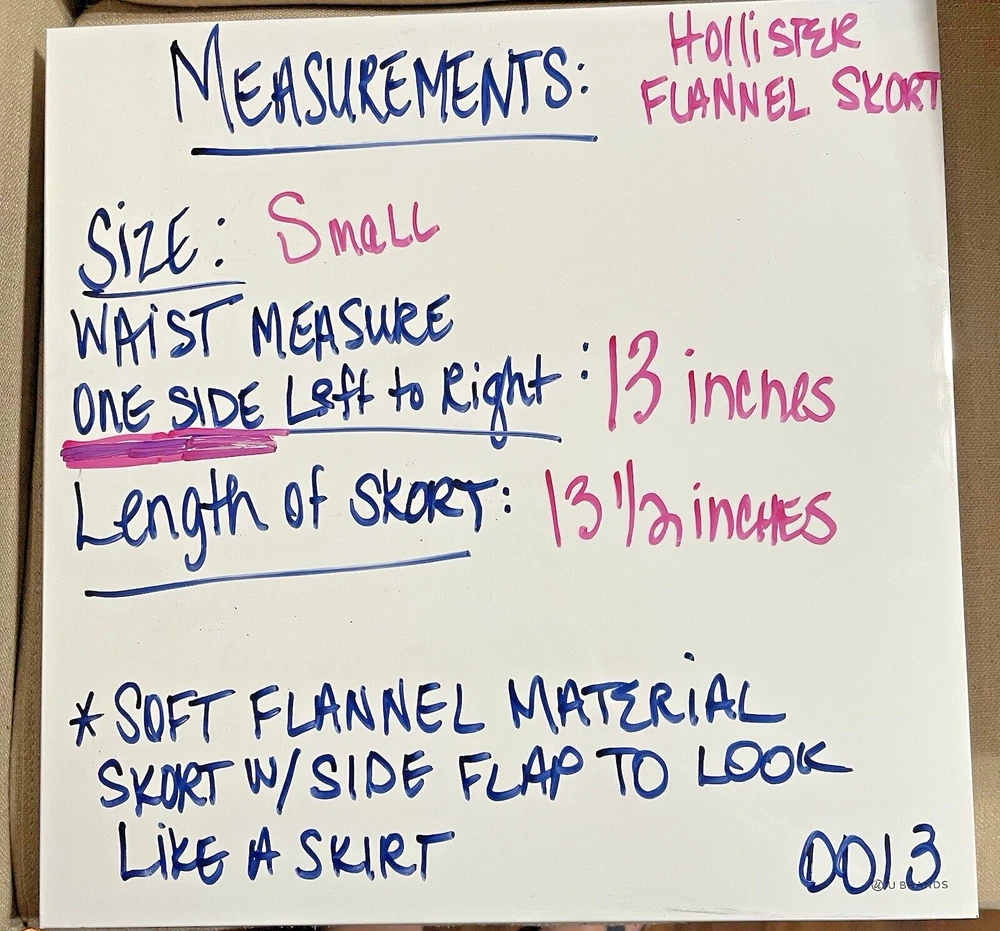 MEASUREMENTS:
HolliSTER
FLANNEL SKORT
SiZE: Small
WAiST MEASURE
ONE SIDE Left to Right: 13 inches
Length of SKORT: 13 1/2 incHES
* SOFT FLANNEL MATERiAL
SKORT W/ SIDE FLAP TO LOOK
LiKE A SKIRT
0013
U BRANDS